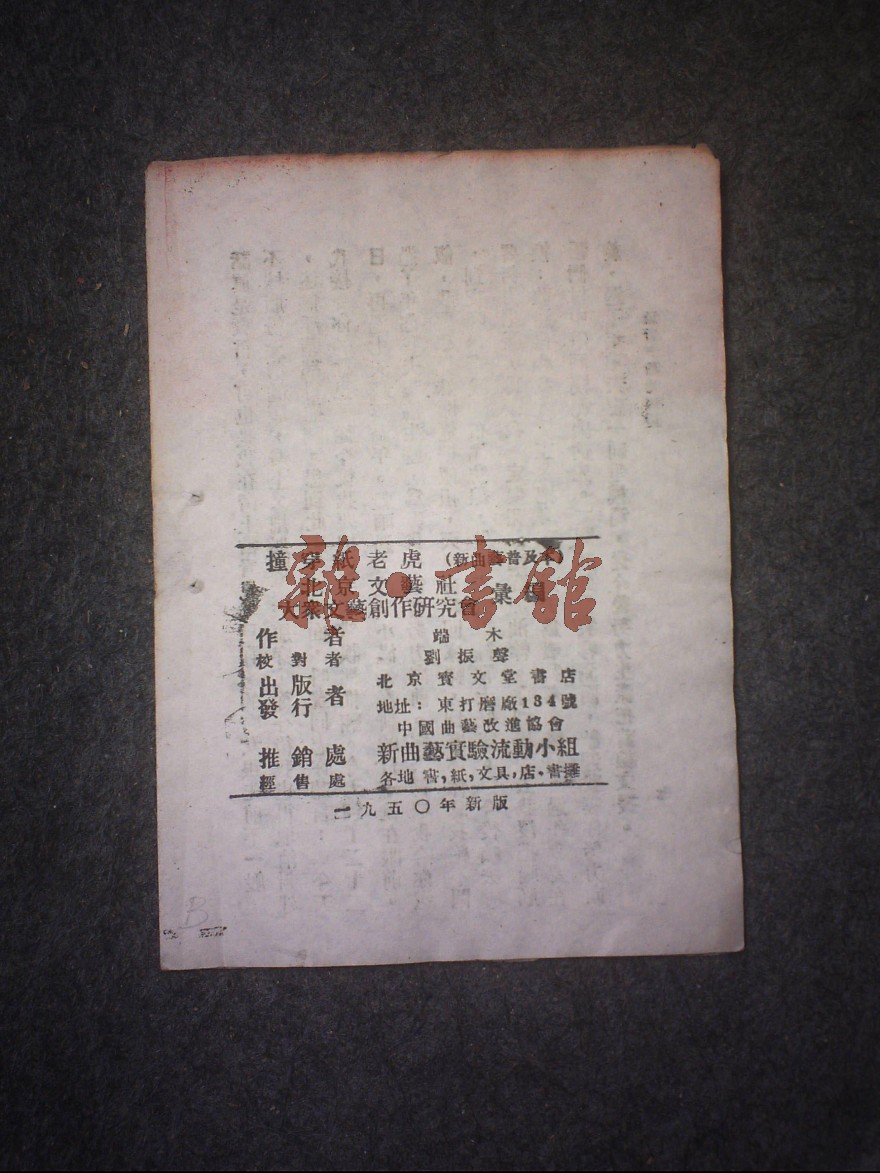 撞穿紙老虎 (新曲藝普及本)
北京文藝社
大衆文藝創作研究會 彙編
作者 端木
校對者 劉振聲
出版發行者 北京寳文堂書店
地址：東打磨廠134號
中國曲藝改進協會
推銷處 新曲藝實驗流動小組
經售處 各地書，紙，文具，店，書攤
一九五〇年新版
雜·書館
B